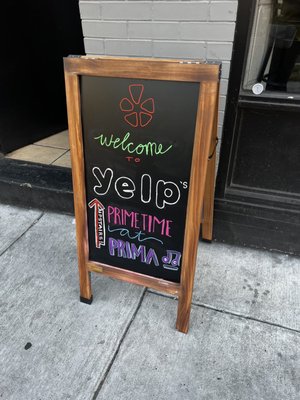 welcome
TO
yelp's
UPSTAIRS
PRIMETIME
at
PRIMA